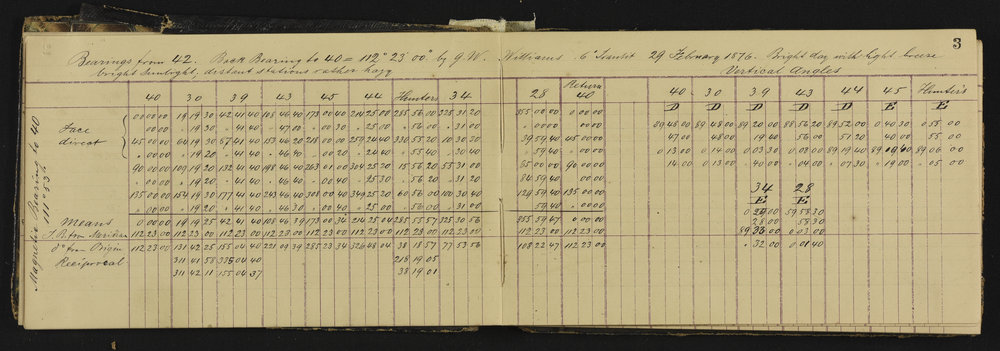 3
Bearings from 42. Back Bearing to 40 = 112° 23' 00" by G. W. Williams 6" Transit 29 February 1876. Bright day with light breeze
bright Sunlight, distant stations rather hazy Vertical Angles
40 30 39 43 45 44 Hunters 34 28 Return 40 40 30 39 43 44 45 Hunter's
D D D D D E E
Magnetic Bearing to 40
Face direct
00 00 00 19 19 30 42 41 40 108 46 40 173 00 40 214 25 00 285 56 10 325 31 20 355 00 00 0 00 00 89 48 00 89 48 00 89 20 00 88 56 20 89 52 00 0 40 30 0 55 00
00 00 19 30 41 40 47 00 00 30 25 00 56 00 31 00 00 00 00 00 47 00 48 00 19 40 56 00 51 20 40 00 55 00
45 00 00 64 19 30 87 41 40 153 46 20 218 00 00 259 24 40 330 55 20 10 30 30 39 59 40 45 00 00 0 13 00 0 14 00 0 03 30 0 08 00 89 19 40 89 19 40 89 06 00
00 00 19 20 41 40 46 40 00 20 24 40 55 40 30 40 59 40 00 00 14 00 0 13 00 40 00 04 00 07 30 19 00 05 00
90 00 00 109 19 20 132 41 40 198 46 40 263 01 00 304 25 20 15 56 20 55 31 00 85 00 00 90 00 00
00 00 19 20 41 40 46 40 00 40 25 30 56 20 31 20 84 59 40 00 00
135 00 00 154 19 30 177 41 40 243 46 40 308 00 40 349 25 20 60 56 00 100 30 40 129 59 40 135 00 00 34 28
00 00 19 20 41 40 46 30 00 40 25 00 56 00 31 00 59 40 00 00 E E
Means 0 00 00 19 19 25 42 41 40 108 46 39 173 00 34 214 25 04 285 55 57 325 30 56 355 59 47 0 00 00 28 00 58 30
112 23 00 112 23 00 112 23 00 112 23 00 112 23 00 112 23 00 112 23 00 112 23 00 112 23 00 112 23 00 0 03 00
from Origin 112 23 00 131 42 25 155 04 40 221 09 39 285 23 34 326 48 04 38 18 57 77 53 56 108 22 47 112 23 00 32 00 0 01 40
Reciprocal 311 41 58 335 04 40 218 19 05
311 42 11 155 04 37 38 19 01